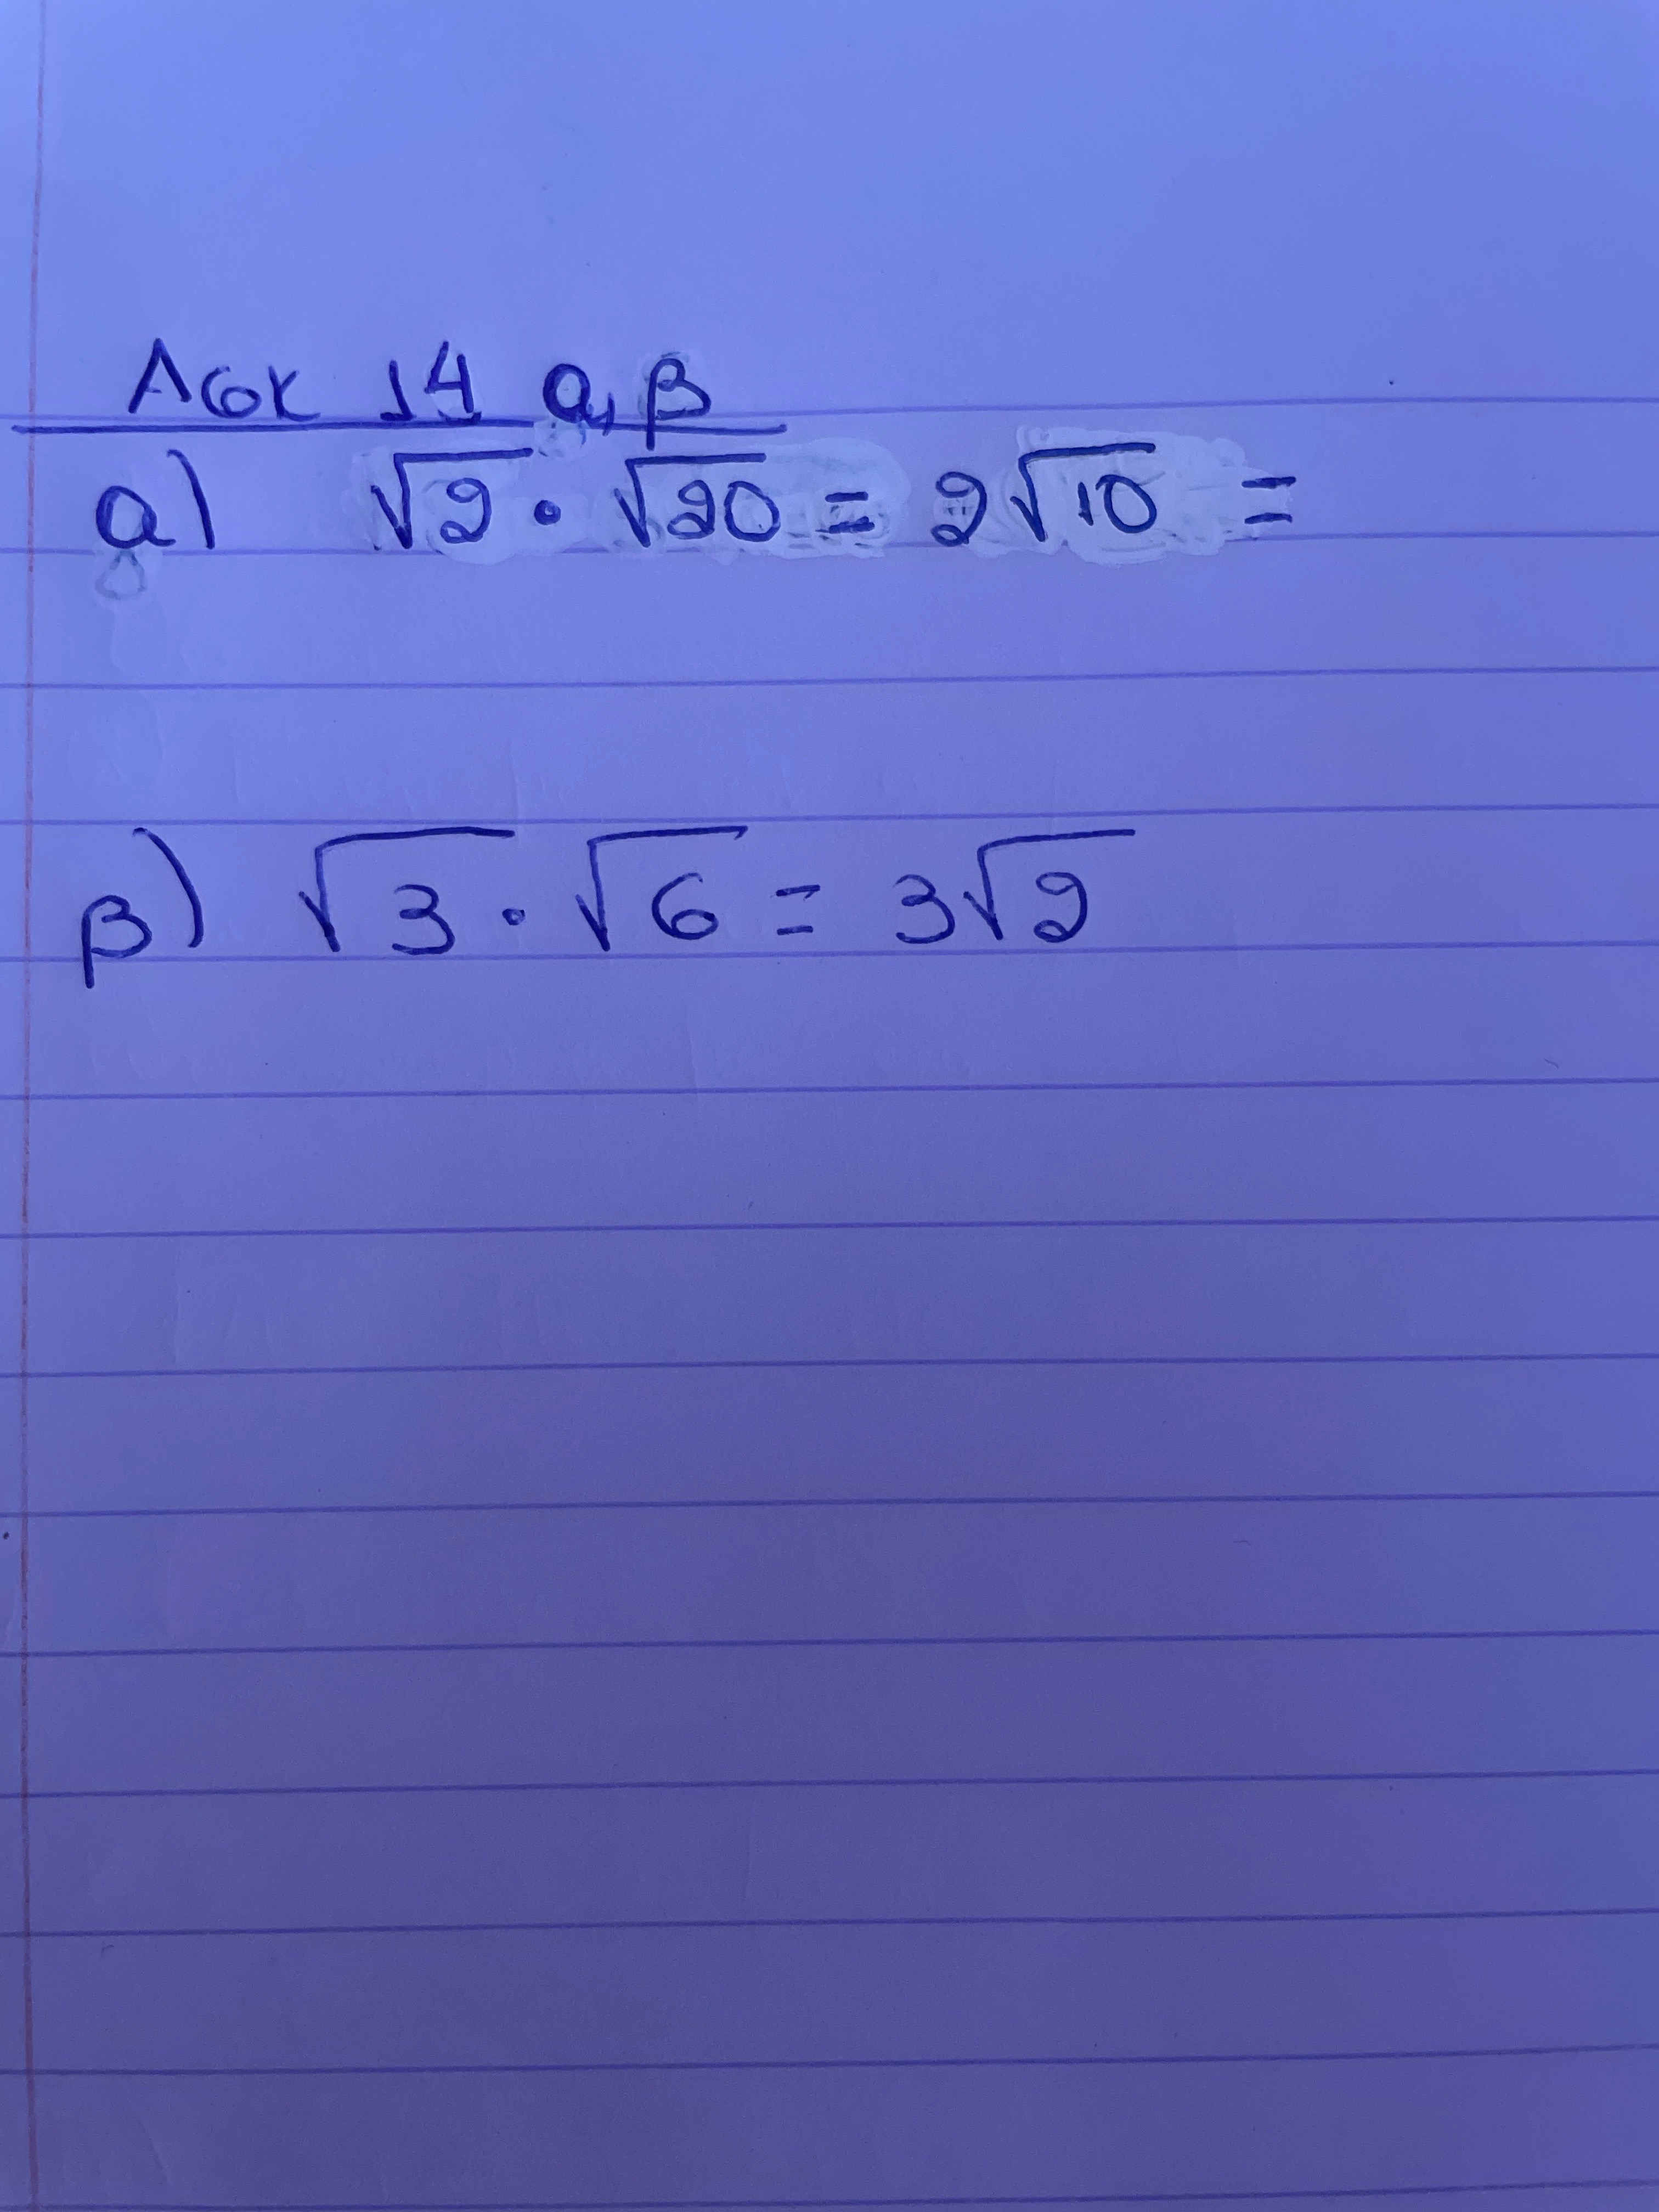 Ασκ 14 α, β
α) √2 · √20 = 2√10 =
β) √3 · √6 = 3√2